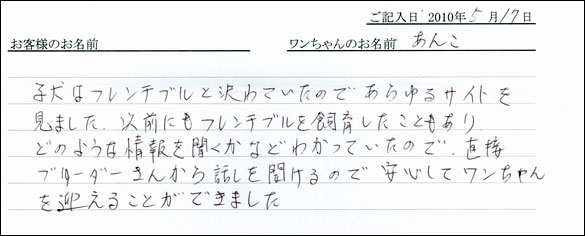 ご記入日 2010年 5月17日
お客様のお名前 ワンちゃんのお名前 あんこ
子犬はフレンチブルと決めていたのであらゆるサイトを
見ました. 以前にもフレンチブルを飼育したこともあり
どのような情報を聞くかなどわかっていたので. 直接
ブリーダーさんから話しを聞けるので安心してワンちゃん
を迎えることができました